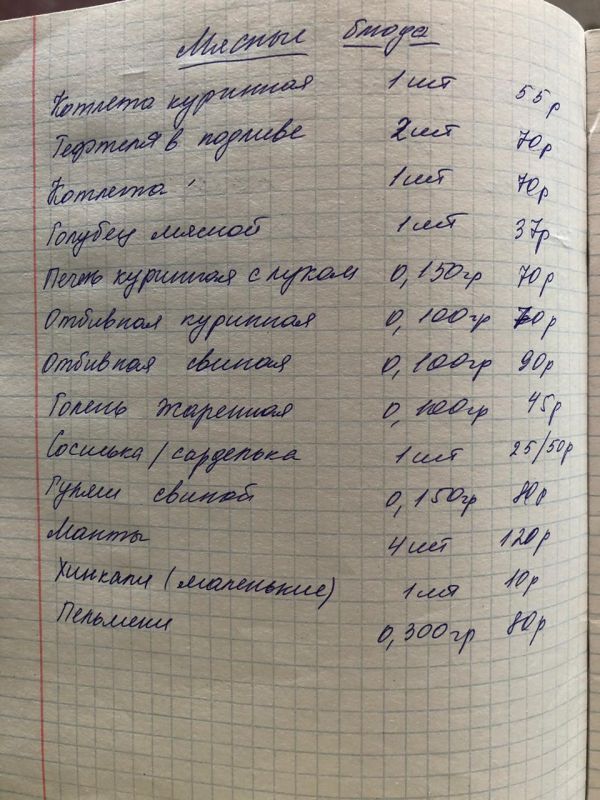 Мясные блюда
Котлета куринная 1шт 55р
Тефтеля в подливе 2шт 70р
Котлета 1шт 70р
Голубец мясной 1шт 37р
Печень куринная с луком 0,150гр 70р
Отбивная куринная 0,100гр 70р
Отбивная свиная 0,100гр 90р
Голень жаренная 0,100гр 45р
Сосиська/сарделька 1шт 25/50р
Гуляш свиной 0,150гр 80р
Манты 4шт 120р
Хинкали (маленькие) 1шт 10р
Пельмени 0,300гр 80р